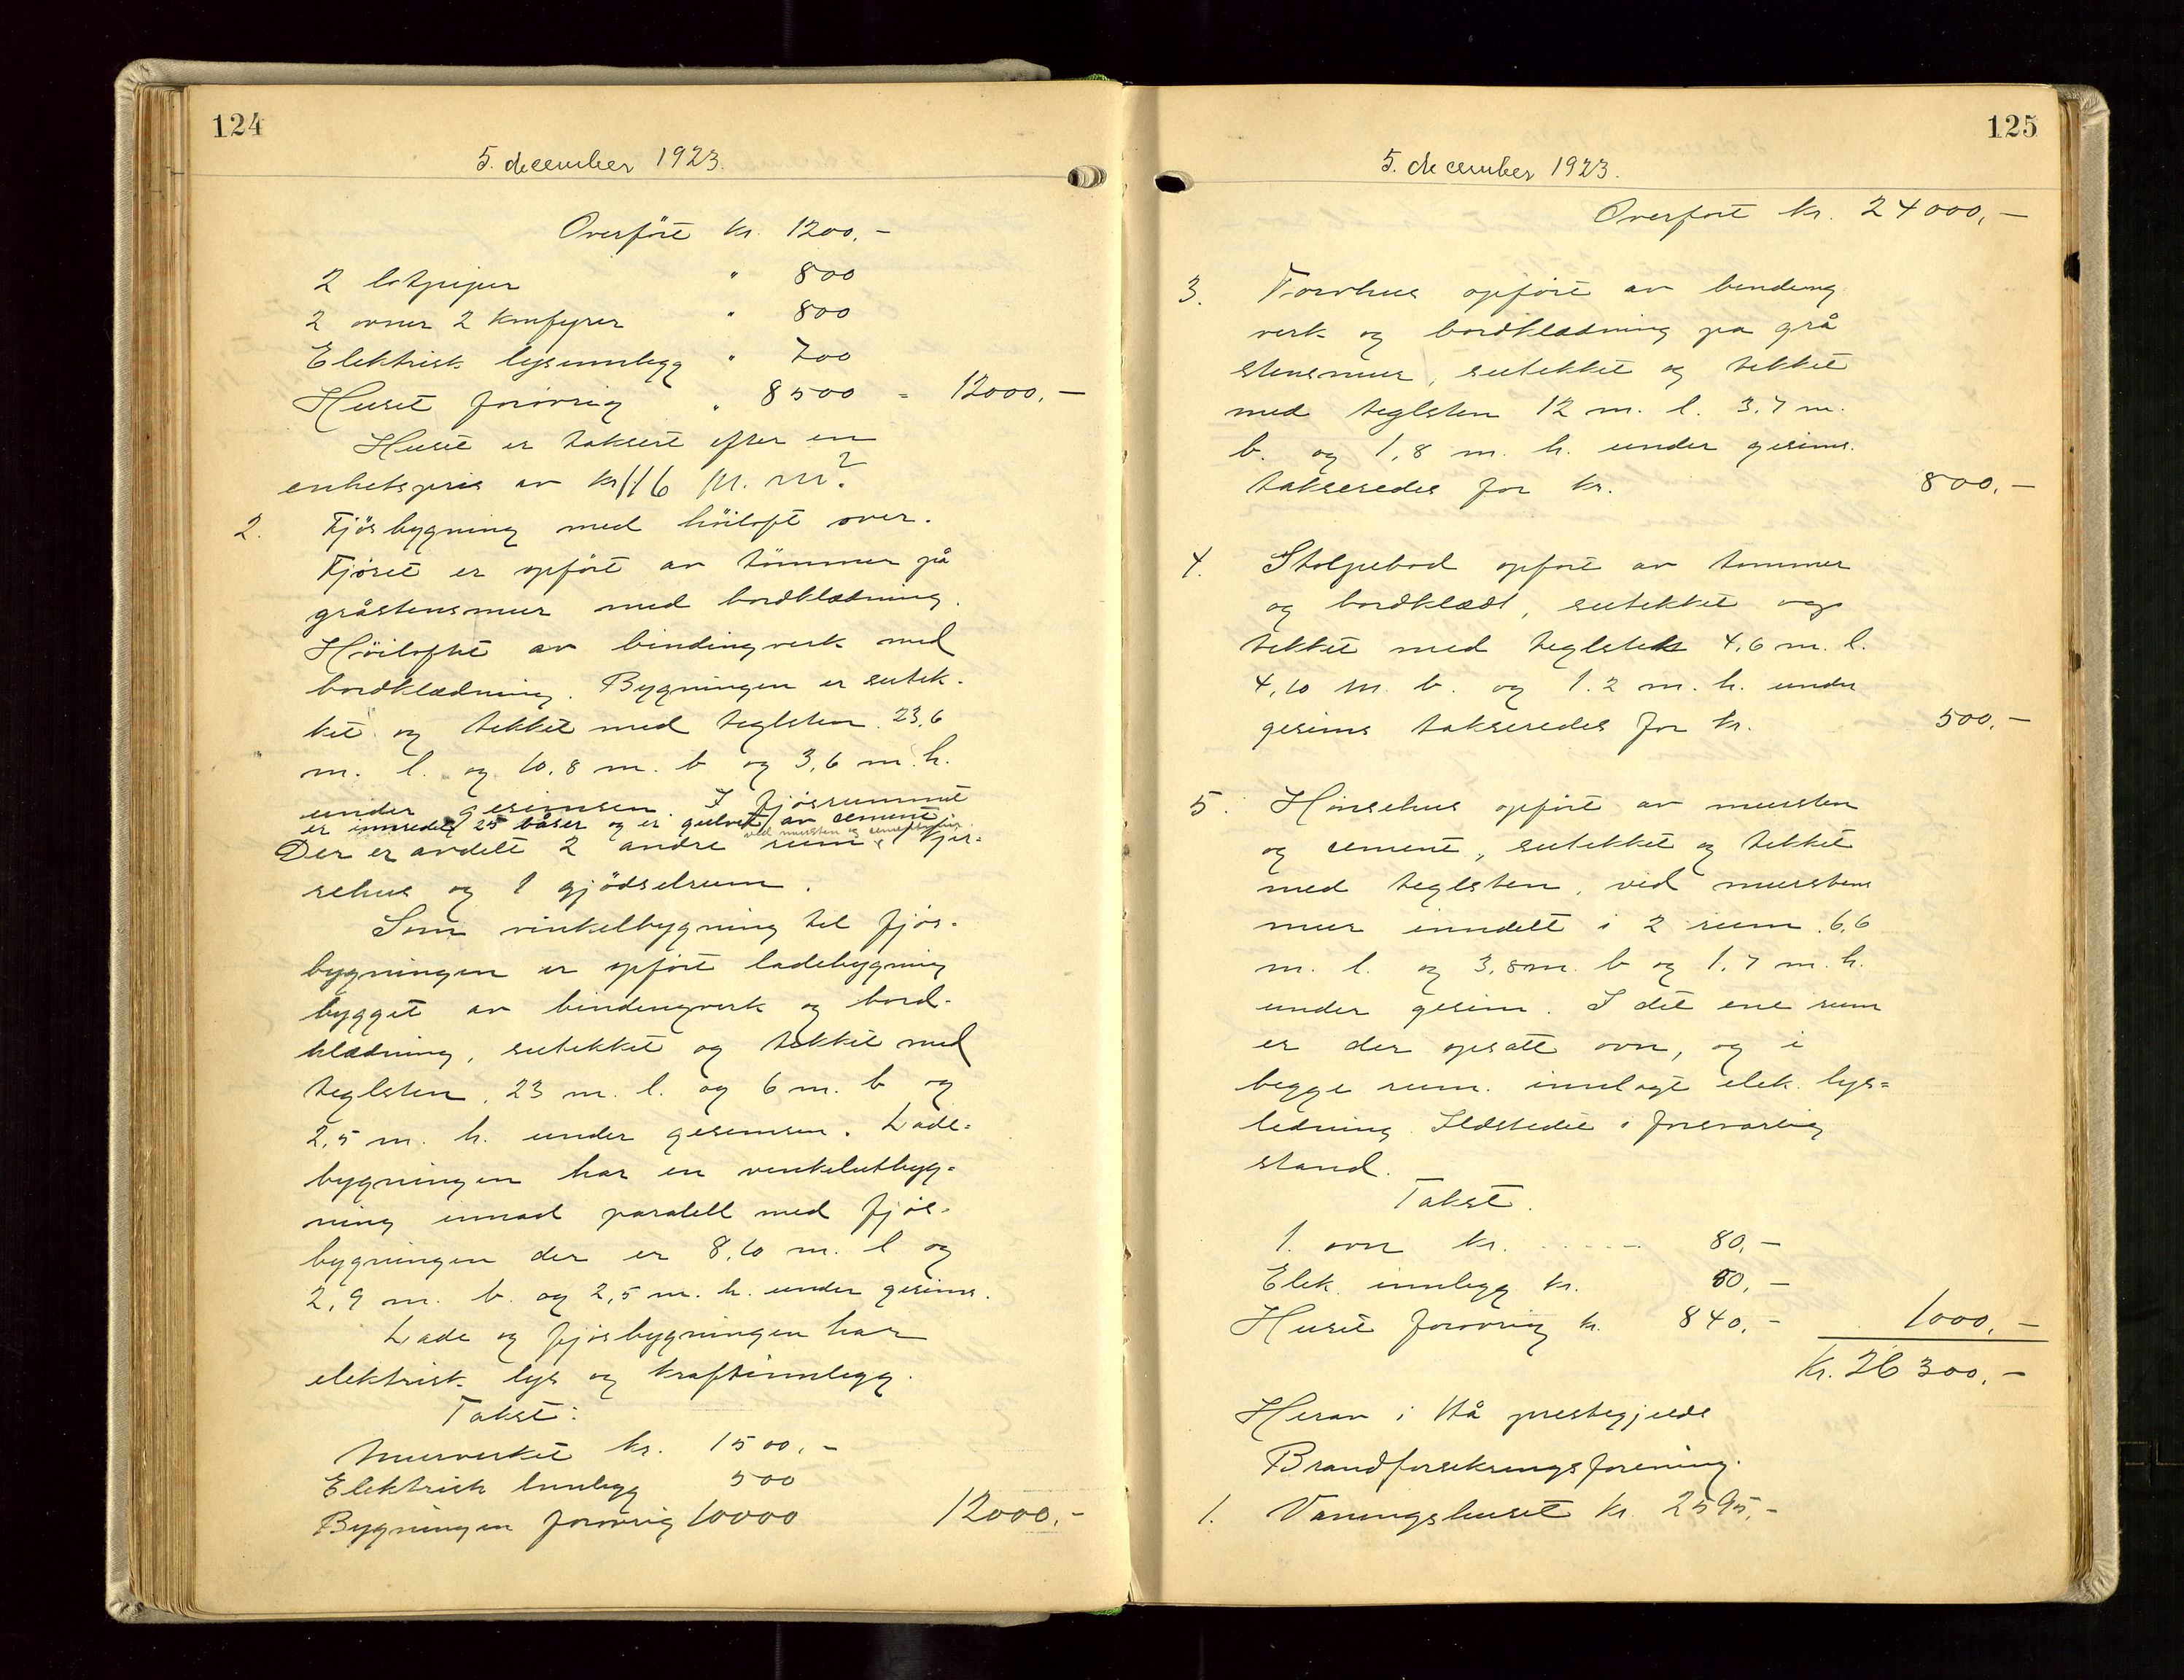 124
5. december 1923.
Overført kr. 1200,-
2 lotpiper " 800
2 ovner 2 komfyrer " 800
Elektrisk lysinnlegg " 700
Huset forøvrig " 8500 = 12000,-
Huset er taksert efter en
enhetspris av kr 116 pr. m².
2. Fjøsbygning med höiloft over.
Fjöset er opfört av tömmer på
gråstensmur med bordklædning.
Höiloftet av bindingverk med
bordklædning. Bygningen er sutek-
ket og tekket med teglsten. 23,6
m. l. og 10,8 m. b og 3,6 m. h.
under gesimsen. I fjøsrummet
er innredet 25 båser og er gulvet av cement
ved mursten og
Der er avdelt 2 andre rum,
sehus og 1 gjödselrum.
Som vinkelbygning til fjøs-
bygningen er opført ladebygning
bygget av bindingverk og bord-
klædning, sutekket og tekket med
teglsten. 23 m. l. og 6 m. b og
2,5 m. h. under gesimsen. Lade=
bygningen har en vinkelutbyg=
ning innad paralell med fjøs-
bygningen der er 8,10 m. l og
2,9 m. b. og 2,5 m. h. under gesims.
Lade og fjøsbygningen har
elektrisk lys og kraftinnlegg.
Takst:
Murverket kr. 1500,-
Elektrisk Innlegg 500
Bygningen forøvrig 10000 12000,-
125
5. december 1923.
Overført kr. 24000,-
3. Torvhus opført av binding
verk og bordklædning på grå
stensmur, sutekket og tekket
med teglsten 12 m. l. 3,7 m.
b. og 1,8 m. h. under gesims.
takseredes for kr. 800,-
4. Stolpebod opført av tømmer
og bordklædt, sutekket og
tekket med teglsten 4,6 m. l.
4,10 m. b. og 1.2 m. h. under
gesims takseredes for kr. 500,-
5. Hønsehus opført av mursten
og cement, sutekket og tekket
med teglsten, ved murstens
mur inndelt i 2 rum. 6,6
m. l. og 3,8 m. b og 1,7 m. h.
under gesims. I det ene rum
er der opsatt ovn, og i
begge rum innlagt elek. lys=
ledning. Ildstedet i forsvarlig
stand.
Takst.
1. ovn kr. ...... 80,-
Elek. innlegg kr. 80,-
Huset forøvrig kr. 840,- 1000,-
Kr. 26300,-
Herav i Hå prestegjelds
Brandforsikringsforening.
1. Vaningshuset kr. 2595,-